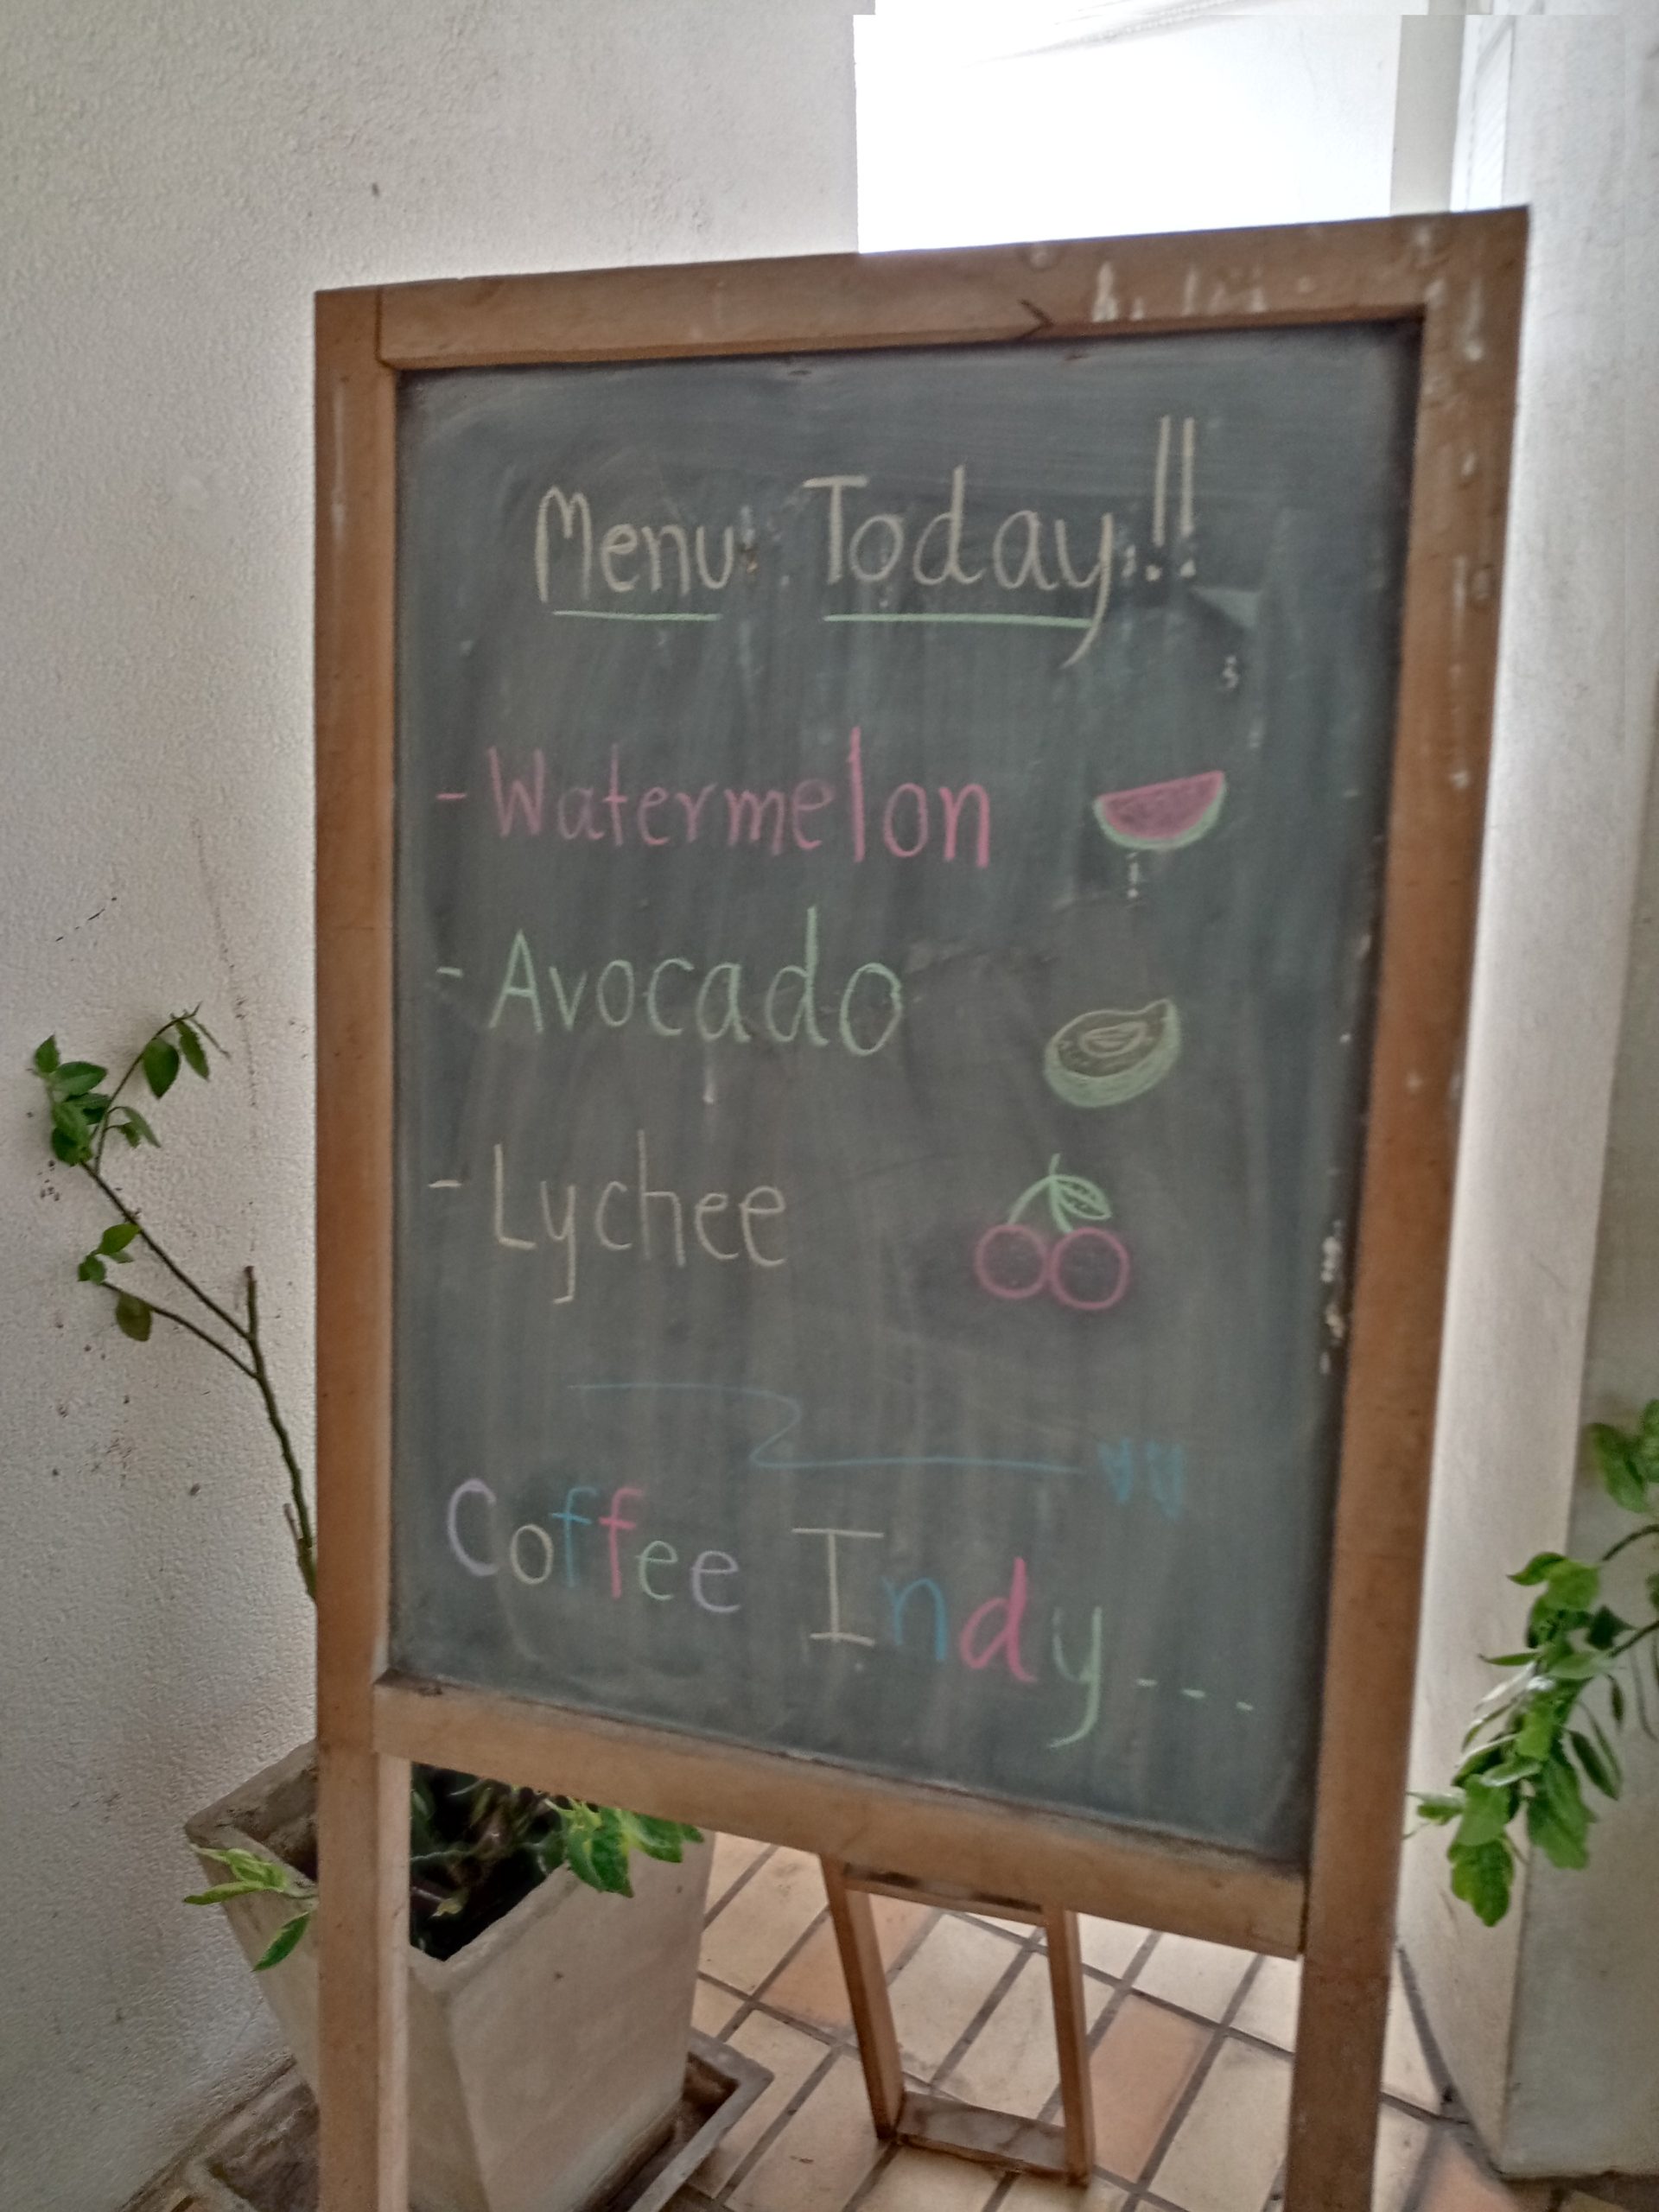 Menu Today!!
- Watermelon
- Avocado
- Lychee
Coffee Indy...